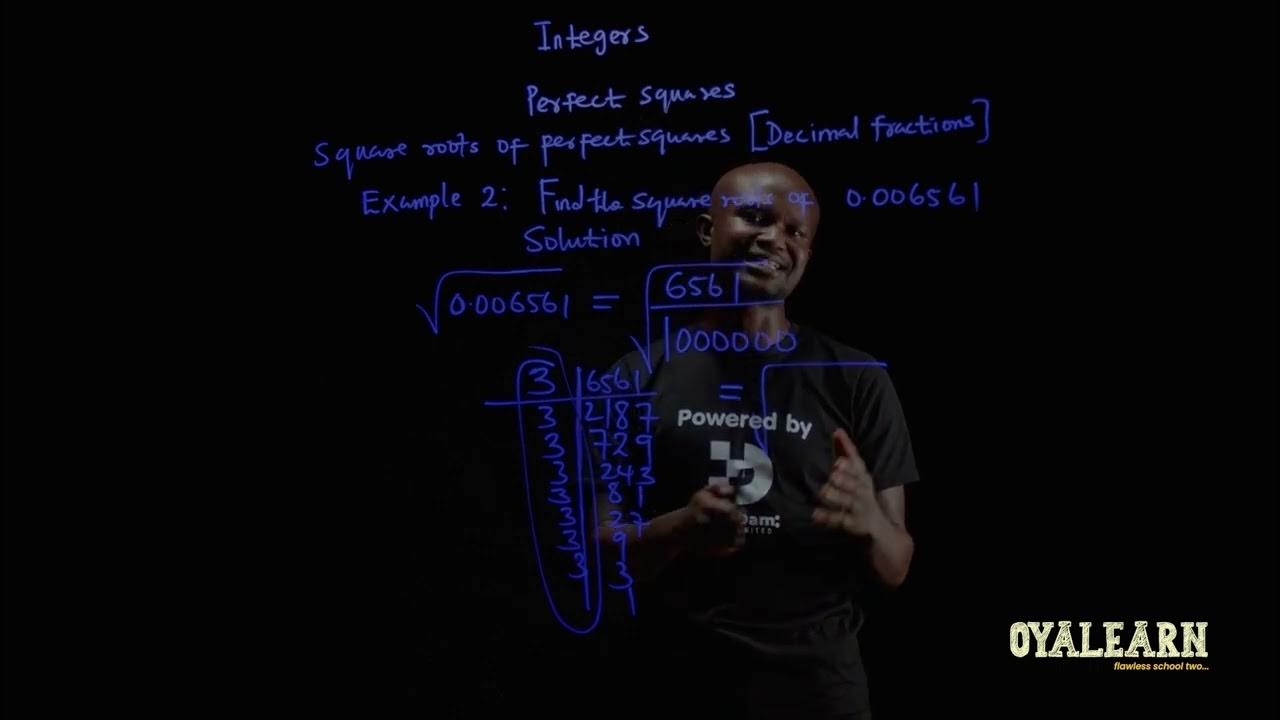 Integers
Perfect squares
Square roots of perfect squares [Decimal fractions]
Example 2: Find the square roots of 0.006561
Solution
√0.006561 = √6561/1000000
3 | 6561
= √
3 | 2187
3 | 729
3 | 243
3 | 81
3 | 27
3 | 9
3 | 3
1
Powered by
OYALEARN
flawless school two...